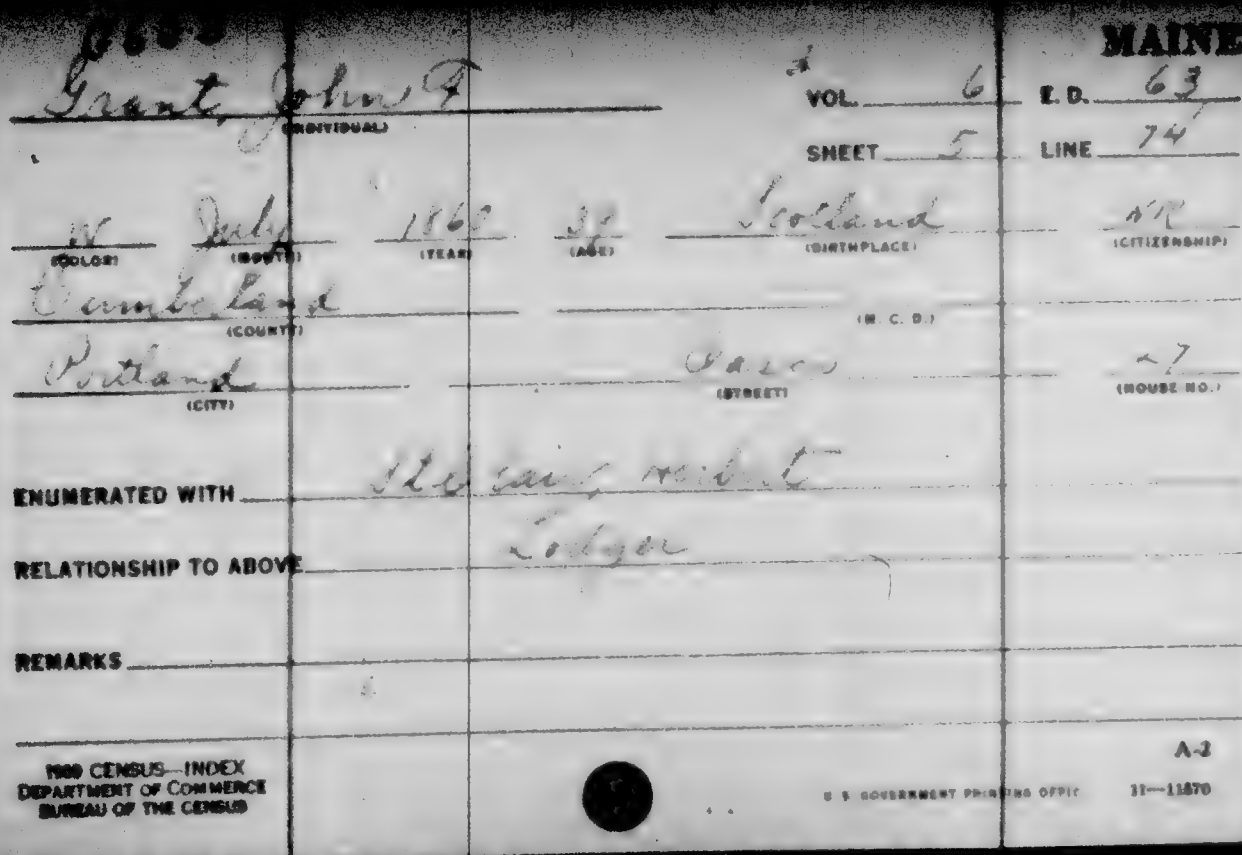 MAINE
Grant, John F
(INDIVIDUAL)
VOL. 6 E.D. 63
SHEET 5 LINE 74
W July 1860 39 Scotland NR
(COLOR) (MONTH) (YEAR) (AGE) (BIRTHPLACE) (CITIZENSHIP)
Cumberland
(COUNTY) (M. C. D.)
Portland 27
(CITY) (STREET) (HOUSE NO.)
ENUMERATED WITH Herbert
RELATIONSHIP TO ABOVE Lodger
REMARKS
1900 CENSUS—INDEX
DEPARTMENT OF COMMERCE
BUREAU OF THE CENSUS
A-2
U S GOVERNMENT PRINTING OFFIC 11—11870